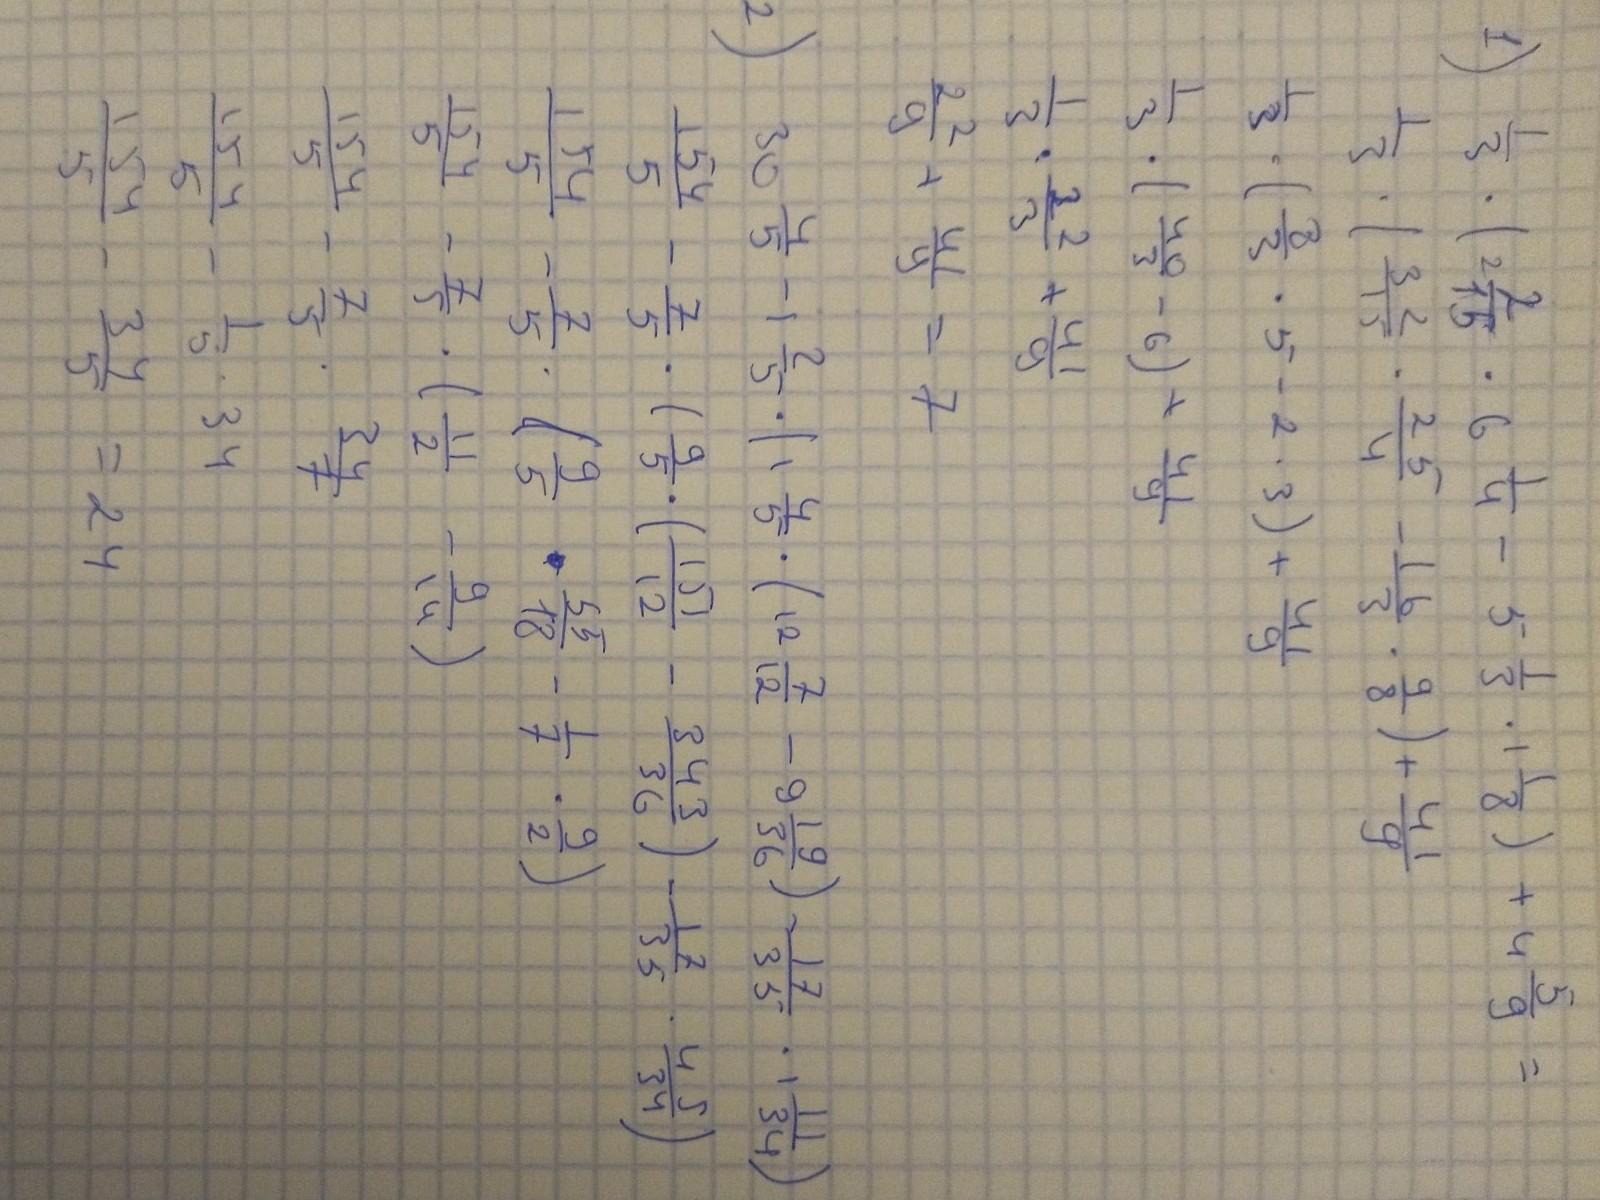 1) 1/3 · (2 2/15 · 6 1/4 - 5 1/3 · 1 1/8) + 4 5/9 =
1/3 · (32/15 · 25/4 - 16/3 · 9/8) + 41/9
1/3 · (8/3 · 5 - 2 · 3) + 41/9
1/3 · (40/3 - 6) + 41/9
1/3 · 22/3 + 41/9
22/9 + 41/9 = 7
2) 30 4/5 - 1 2/5 · (1 4/5 · (12 7/12 - 9 19/36) - 17/35 · 1 11/34)
154/5 - 7/5 · (9/5 · (151/12 - 343/36) - 17/35 · 45/34)
154/5 - 7/5 · (9/5 · 55/18 - 1/7 · 9/2)
154/5 - 7/5 · (11/2 - 9/14)
154/5 - 7/5 · 34/7
154/5 - 1/5 · 34
154/5 - 34/5 = 24